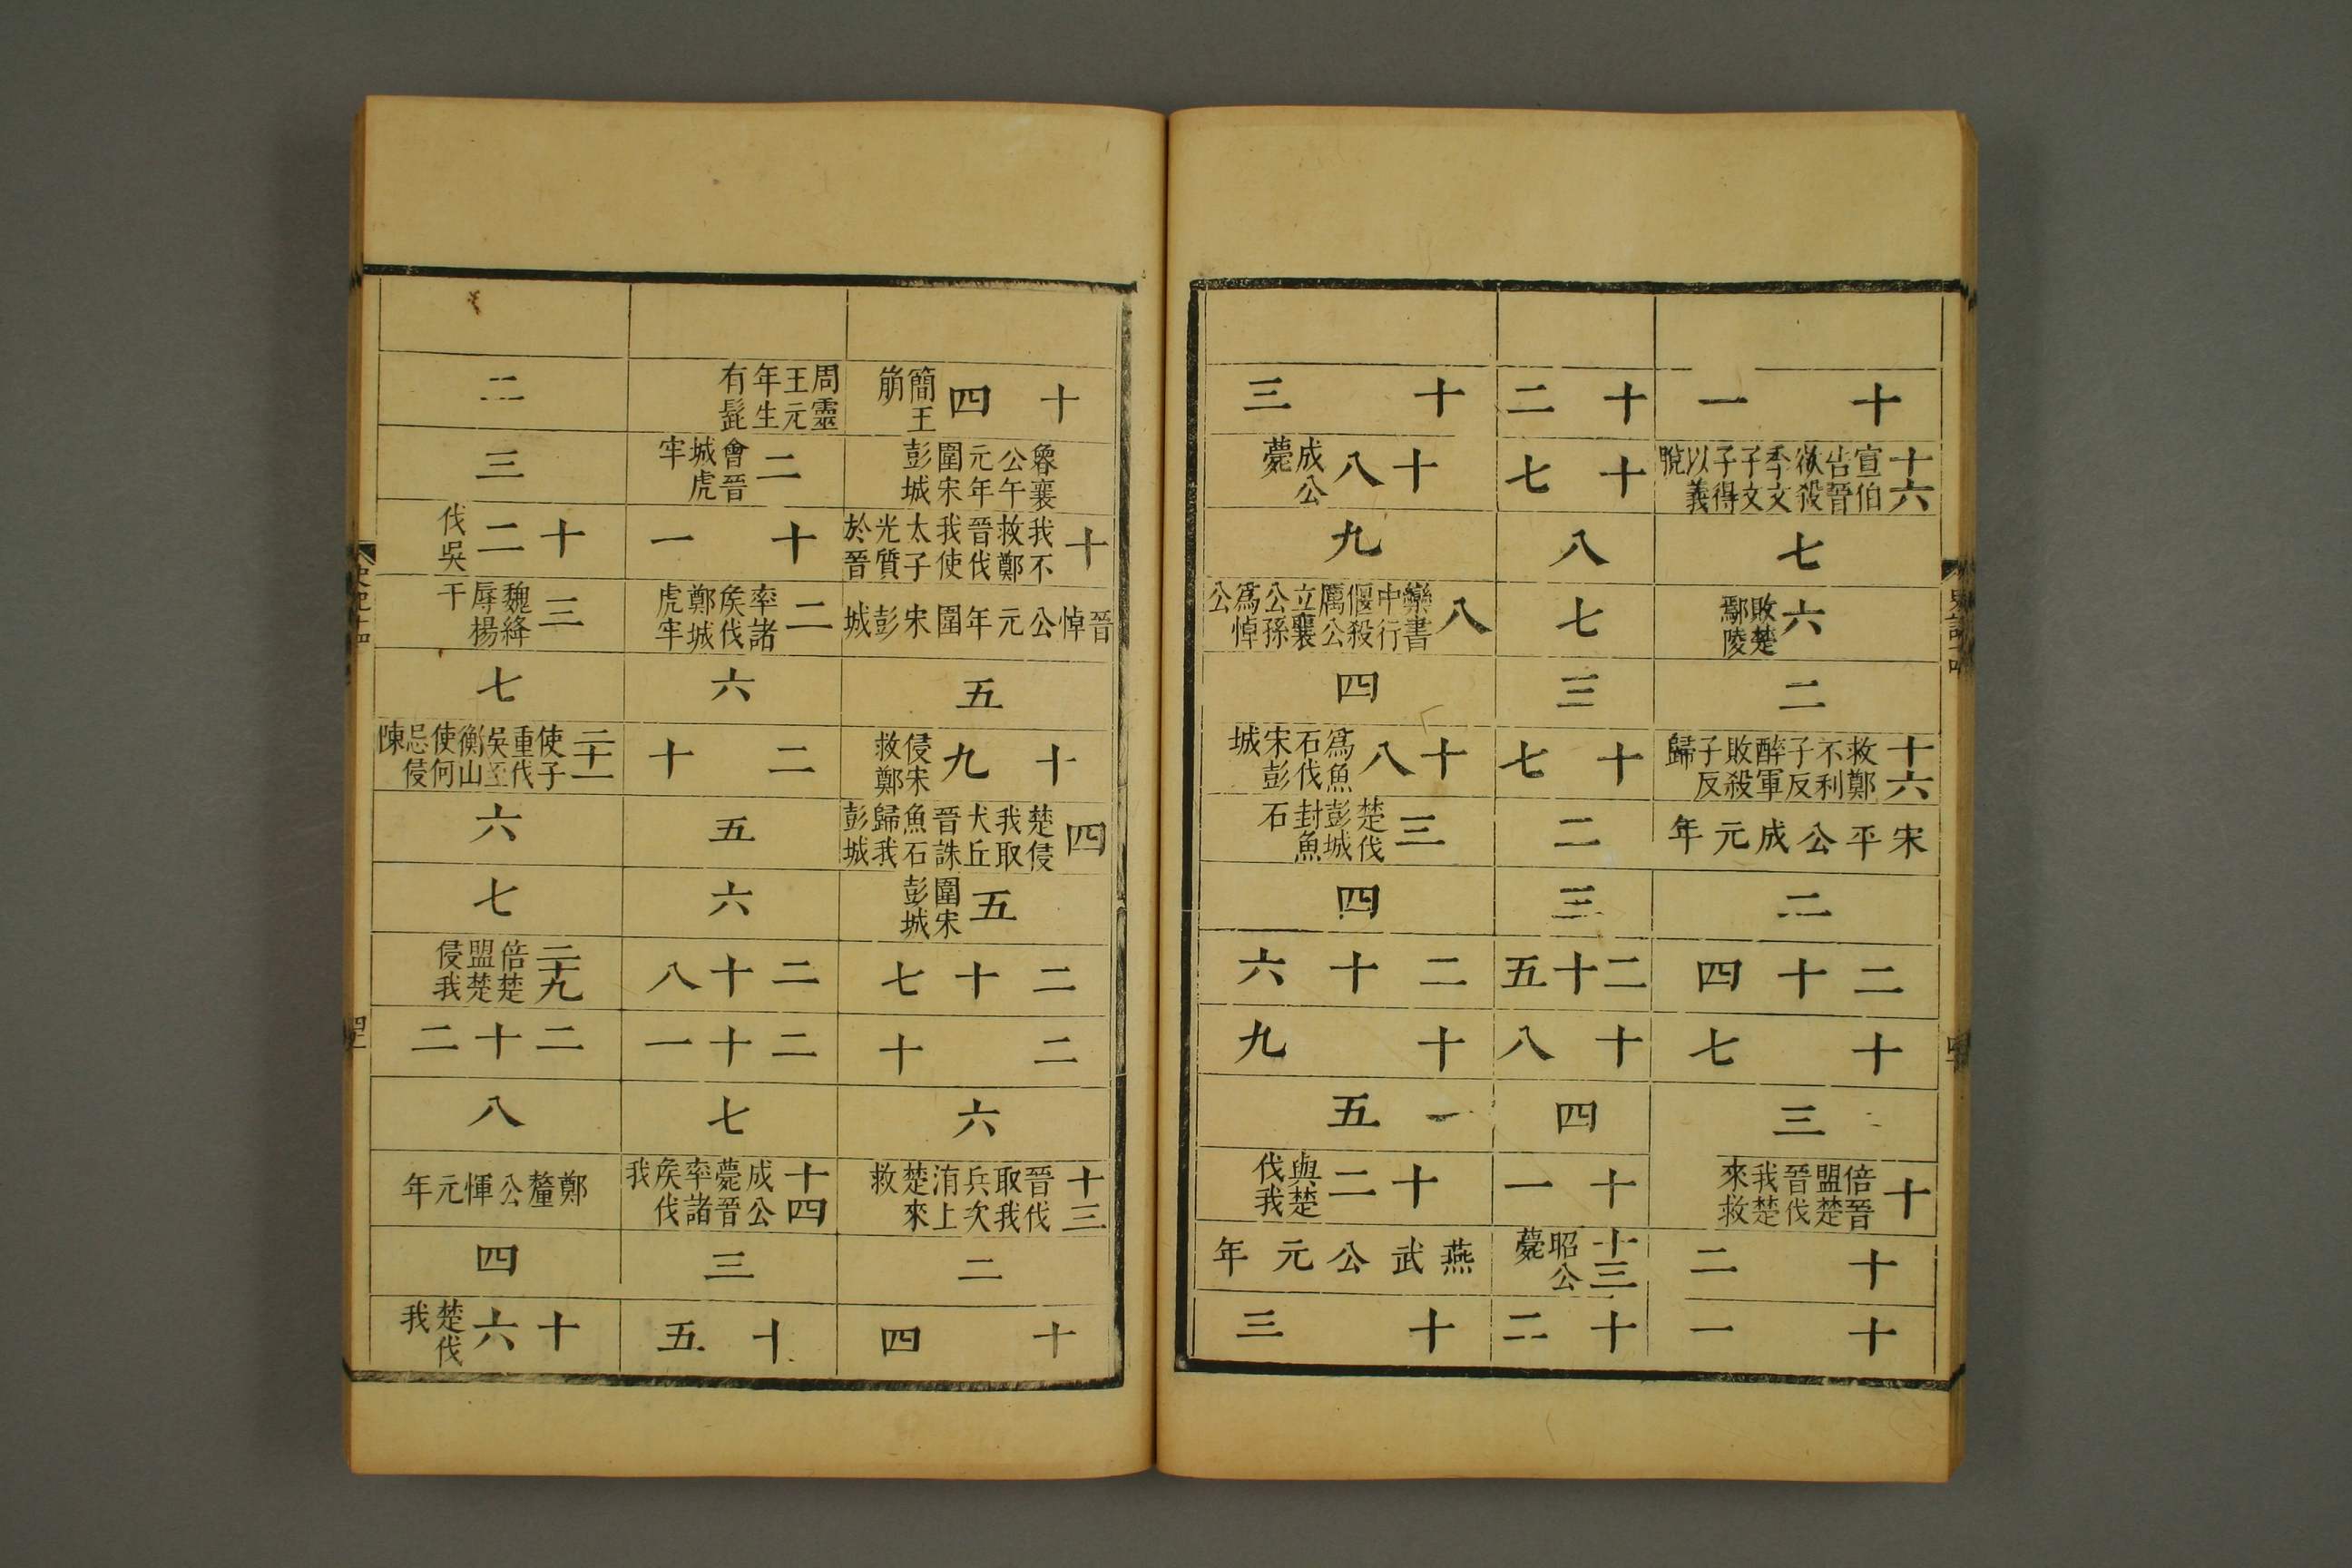 十一
十六宣伯告晉欲殺季文子文子得以義脫
七
六敗楚鄢陵
二
十六救鄭不利子反醉軍敗殺子反歸
宋平公成元年
二
二十四
十七
三
十倍晉盟楚晉伐我楚來救
十二
十一
十二
十七
八
七
三
十七
二
三
二十五
十八
四
十一
十三昭公薨
十二
十三
十八成公薨
九
八欒書中行偃殺厲公立襄公孫爲悼公
四
十八爲魚石伐宋彭城
三楚伐彭城封魚石
四
二十六
十九
五
十二與楚伐我
燕武公元年
十三
十四簡王崩
魯襄公午元年圍宋彭城
十我不救鄭晉伐我使太子光質於晉
晉悼公元年圍宋彭城
五
十九侵宋救鄭
四楚侵我取犬丘晉誅魚石歸我彭城
五圍宋彭城
二十七
二十
六
十三晉伐取我兵次洧上楚來救
二
十四
周靈王元年生有髭
二會晉城虎牢
十一
二率諸矦伐鄭城虎牢
六
二十
五
六
二十八
二十一
七
十四成公薨晉率諸矦伐我
三
十五
二
三
十二伐吳
三魏絳辱楊干
七
二十一使子重伐吳至衡山使何忌侵陳
六
七
二十九倍楚盟楚侵我
二十二
八
鄭釐公惲元年
四
十六楚伐我